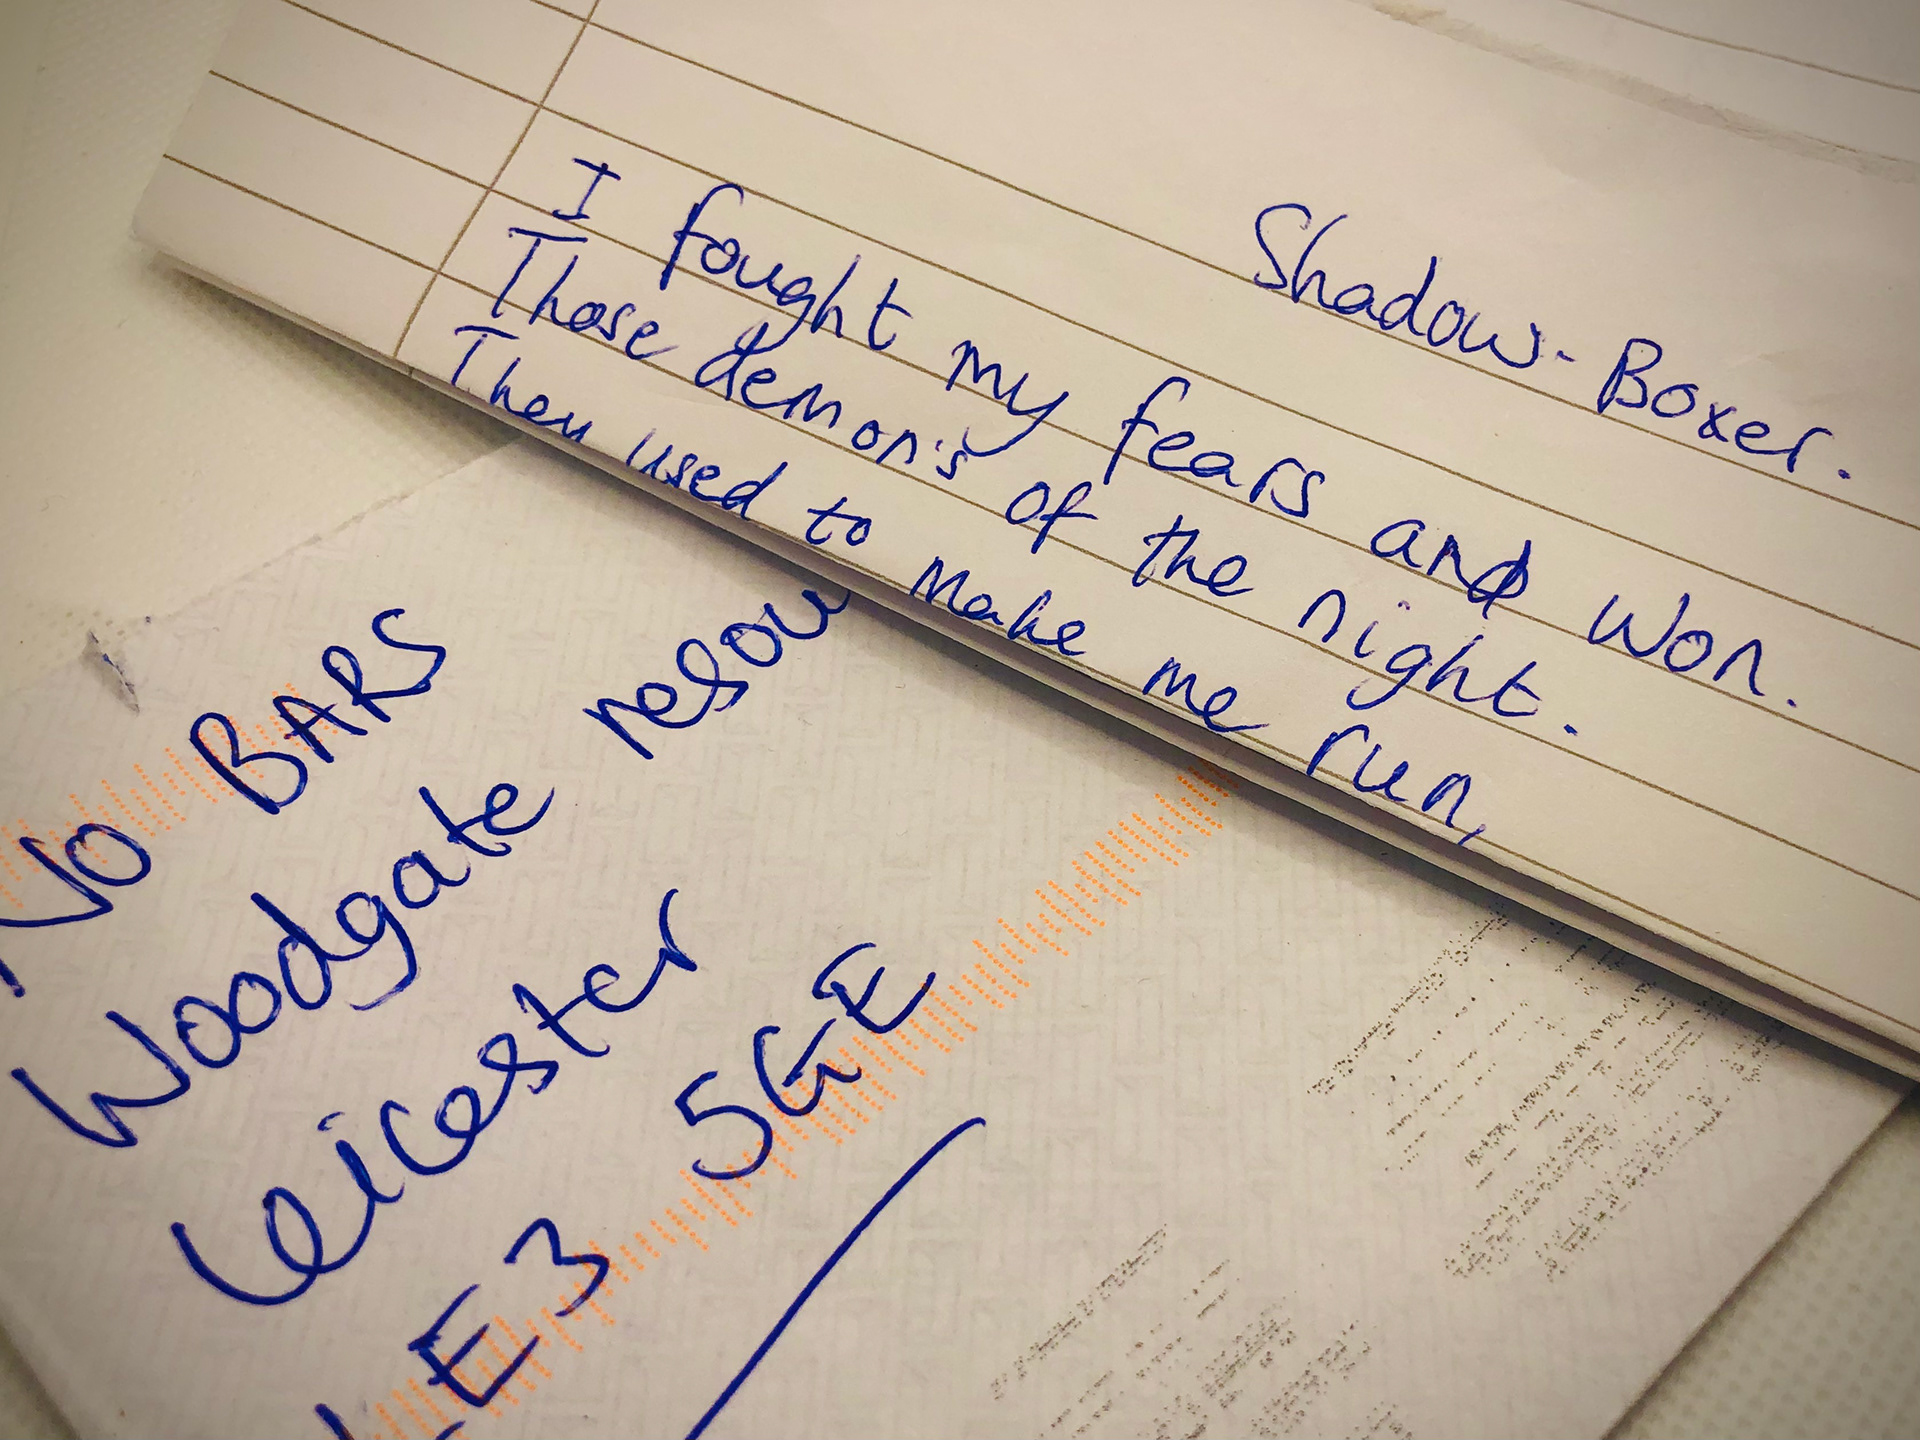 Shadow-Boxer.
I fought my fears and won.
Those demon's of the night.
They used to make me run,
No BARS
Woodgate resou
Leicester
LE3 5GE